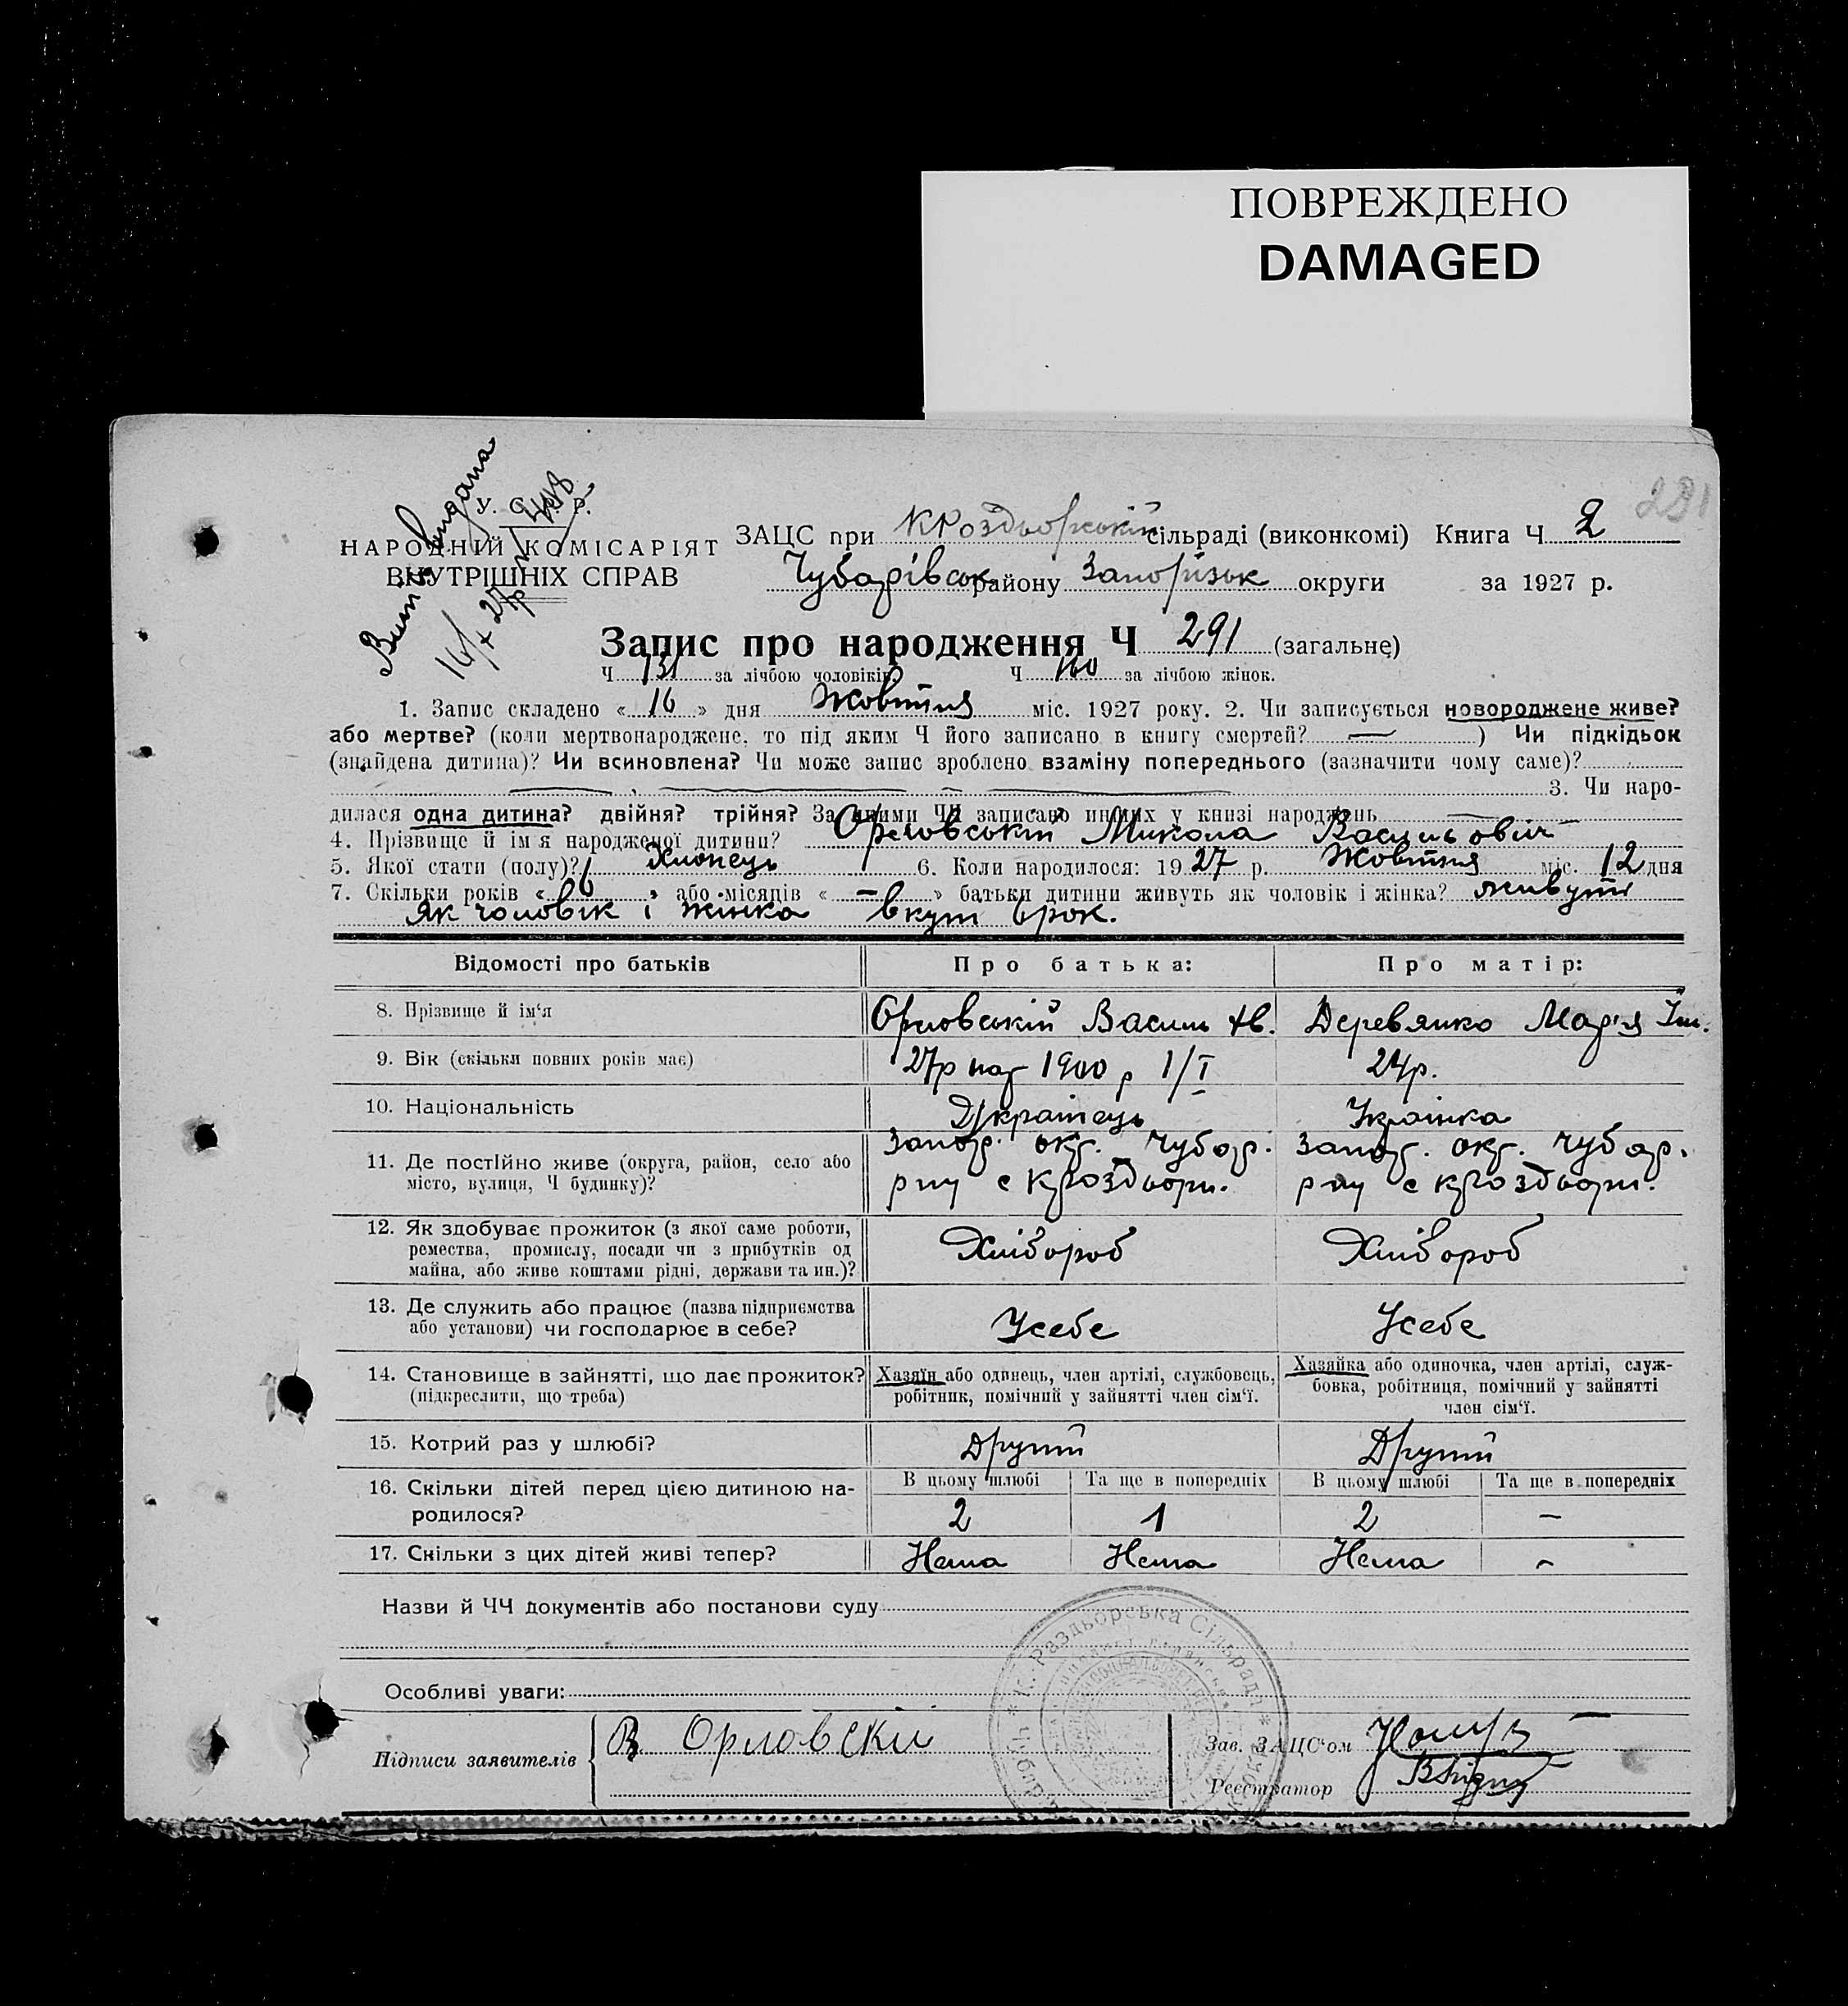 ПОВРЕЖДЕНО
DAMAGED
291
У. С. Р. Р.
НАРОДНІЙ КОМІСАРІЯТ
ВНУТРІШНІХ СПРАВ
ЗАЦС при КРоздьорській сільраді (виконкомі) Книга Ч 2
Чубарівськ району Запорізьк округи за 1927 р.
Запис про народження Ч 291 (загальне)
Ч 131 за лічбою чоловіків. Ч 160 за лічбою жінок.
1. Запис складено « 16 » дня Жовтня міс. 1927 року. 2. Чи записується новороджене живе?
або мертве? (коли мертвонароджене, то під яким Ч його записано в книгу смертей? — ) Чи підкідьок
(знайдена дитина)? Чи всиновлена? Чи може запис зроблено взаміну попереднього (зазначити чому саме)?
3. Чи наро-
дилася одна дитина? двійня? трійня? За якими ЧЧ записано инших у книзі народжень
4. Прізвище й ім'я народженої дитини? Орловській Микола Васильовіч
5. Якої стати (полу)? Хлопець 6. Коли народилося: 1927 р. Жовтня міс. 12 дня
7. Скільки років « 6 » або місяців « – » батьки дитини живуть як чоловік і жінка? живуть
як чоловік і жінка вкуп 6рок.
Відомості про батьків Про батька: Про матір:
8. Прізвище й ім'я Орловській Василь Ів. Деревянко Марія
9. Вік (скільки повних років має) 27р нар 1900 р 1/I 24р.
10. Національність Українець Українка
11. Де постійно живе (округа, район, село або місто, вулиця, Ч будинку)?
Запор. окр. Чубар. Запор. окр. Чубар.
рну с Кроздьори. рну с Кроздьори.
12. Як здобуває прожиток (з якої саме роботи,
ремества, промислу, посади чи з прибутків од
майна, або живе коштами рідні, держави та ин.)?
Хлібороб Хлібороб
13. Де служить або працює (назва підприємства
або установи) чи господарює в себе?
Усебе Усебе
14. Становище в зайнятті, що дає прожиток?
(підкреслити, що треба)
Хазяїн або одинець, член артілі, службовець,
робітник, помічний у зайнятті член сім'ї.
Хазяйка або одиночка, член артілі, служ-
бовка, робітниця, помічний у зайнятті
член сім'ї.
15. Котрий раз у шлюбі? Другий Другий
16. Скільки дітей перед цією дитиною на-
родилося?
В цьому шлюбі Та ще в попередніх В цьому шлюбі Та ще в попередніх
2 1 2 –
17. Скільки з цих дітей живі тепер? Нема Нема Нема –
Назви й ЧЧ документів або постанови суду
Особливі уваги:
К.-Раздьоревка Сільрада
Підписи заявителів В Орловскій
Зав. ЗАЦС'ом
Реєстратор